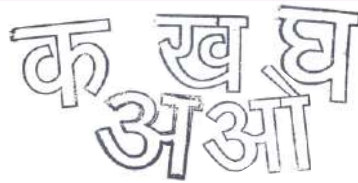 क ख घ
अ ओ